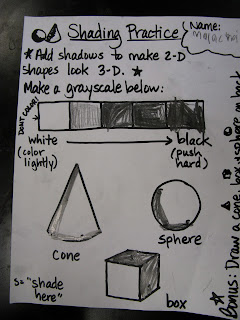 Shading Practice
Name:
★Add shadows to make 2-D
shapes look 3-D. ★
Make a grayscale below:
DON'T COLOR!
white → black
(color lightly)
(push hard)
cone
sphere
S= "shade here"
box
★Bonus: Draw a cone, box & sphere on back